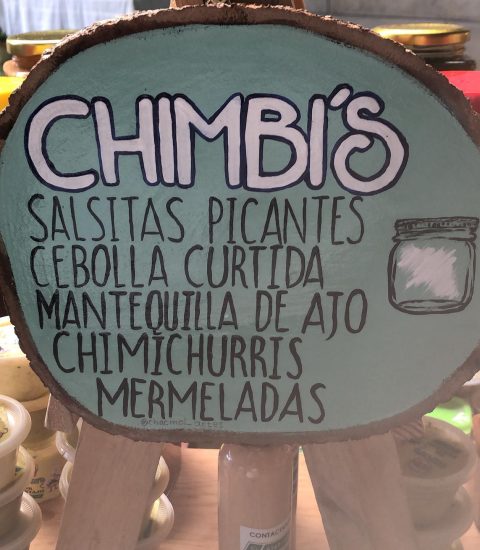 CHIMBI´S
SALSITAS PICANTES
CEBOLLA CURTIDA
MANTEQUILLA DE AJO
CHIMICHURRIS
MERMELADAS
CONTAC